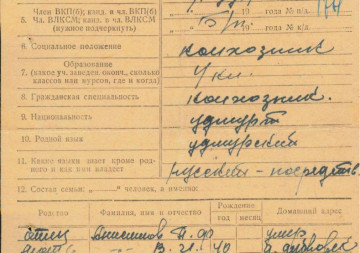 Член ВКП(б); канд. в чл. ВКП(б)
19 года № п/б.
5. Член ВЛКСМ; канд. в чл. ВЛКСМ
(нужное подчеркнуть) б/п 19 года № к/л.
6. Социальное положение колхозник
Образование
7. (какое уч. заведен. оконч., сколько 4 кл.
классов или курсов, где и когда)
8. Гражданская специальность колхозник.
9. Национальность удмурт
10. Родной язык удмуртский
11. Какие языки знает кроме род-
ного и как ими владеет русский - посредств.
12. Состав семьи: „ “ человек, а именно:
Родство Фамилия, имя и отчество Рождение Домашний адрес
год месяц
отец умер